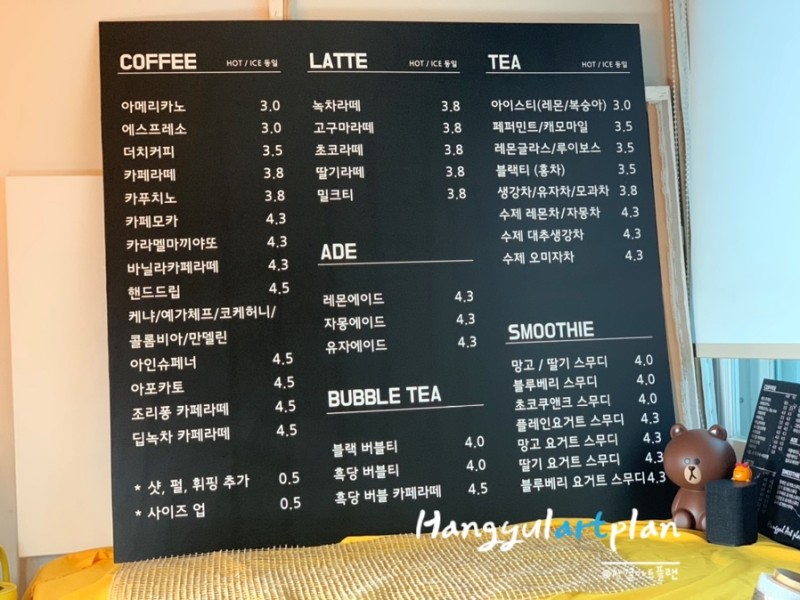 COFFEE HOT / ICE 동일
아메리카노 3.0
에스프레소 3.0
더치커피 3.5
카페라떼 3.8
카푸치노 3.8
카페모카 4.3
카라멜마끼야또 4.3
바닐라카페라떼 4.3
핸드드립 4.5
케냐/예가체프/코케허니/
콜롬비아/만델린
아인슈페너 4.5
아포카토 4.5
조리퐁 카페라떼 4.5
딥녹차 카페라떼 4.5
* 샷, 펄, 휘핑 추가 0.5
* 사이즈 업 0.5
LATTE HOT / ICE 동일
녹차라떼 3.8
고구마라떼 3.8
초코라떼 3.8
딸기라떼 3.8
밀크티 3.8
ADE
레몬에이드 4.3
자몽에이드 4.3
유자에이드 4.3
BUBBLE TEA
블랙 버블티 4.0
흑당 버블티 4.0
흑당 버블 카페라떼 4.5
TEA HOT / ICE 동일
아이스티(레몬/복숭아) 3.0
페퍼민트/캐모마일 3.5
레몬글라스/루이보스 3.5
블랙티 (홍차) 3.5
생강차/유자차/모과차 3.8
수제 레몬차/자몽차 4.3
수제 대추생강차 4.3
수제 오미자차 4.3
SMOOTHIE
망고 / 딸기 스무디 4.0
블루베리 스무디 4.0
초코쿠앤크 스무디 4.0
플레인요거트 스무디 4.3
망고 요거트 스무디 4.3
딸기 요거트 스무디 4.3
블루베리 요거트 스무디 4.3
Hangyulartplan
COFFEE